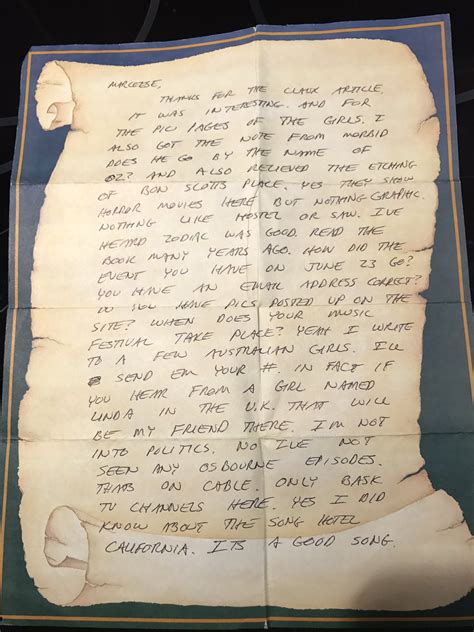 MARCELSE,
THANKS FOR THE CLAUX ARTICLE,
IT WAS INTERESTING. AND FOR
THE PIC/ PAGES OF THE GIRLS. I
ALSO GOT THE NOTE FROM MORBID
DOES HE GO BY THE NAME OF
OZ? AND ALSO RELIEVED THE ETCHING
OF BON SCOTTS PLACE. YES THEY SHOW
HORROR MOVIES HERE BUT NOTHING GRAPHIC.
NOTHING LIKE HOSTEL OR SAW. I'VE
HEARD ZODIAC WAS GOOD. READ THE
BOOK MANY YEARS AGO. HOW DID THE
EVENT YOU HAVE ON JUNE 23 GO?
YOU HAVE AN EMAIL ADDRESS CORRECT?
DO YOU HAVE PICS POSTED UP ON THE
SITE? WHEN DOES YOUR MUSIC
FESTIVAL TAKE PLACE? YEAH I WRITE
TO A FEW AUSTRALIAN GIRLS. I'LL
SEND EM YOUR #. IN FACT IF
YOU HEAR FROM A GIRL NAMED
LINDA IN THE U.K. THAT WILL
BE MY FRIEND THERE. I'M NOT
INTO POLITICS. NO I'VE NOT
SEEN ANY OSBOURNE EPISODES.
THATS ON CABLE. ONLY BASK
TV CHANNELS HERE. YES I DID
KNOW ABOUT THE SONG HOTEL
CALIFORNIA. ITS A GOOD SONG.